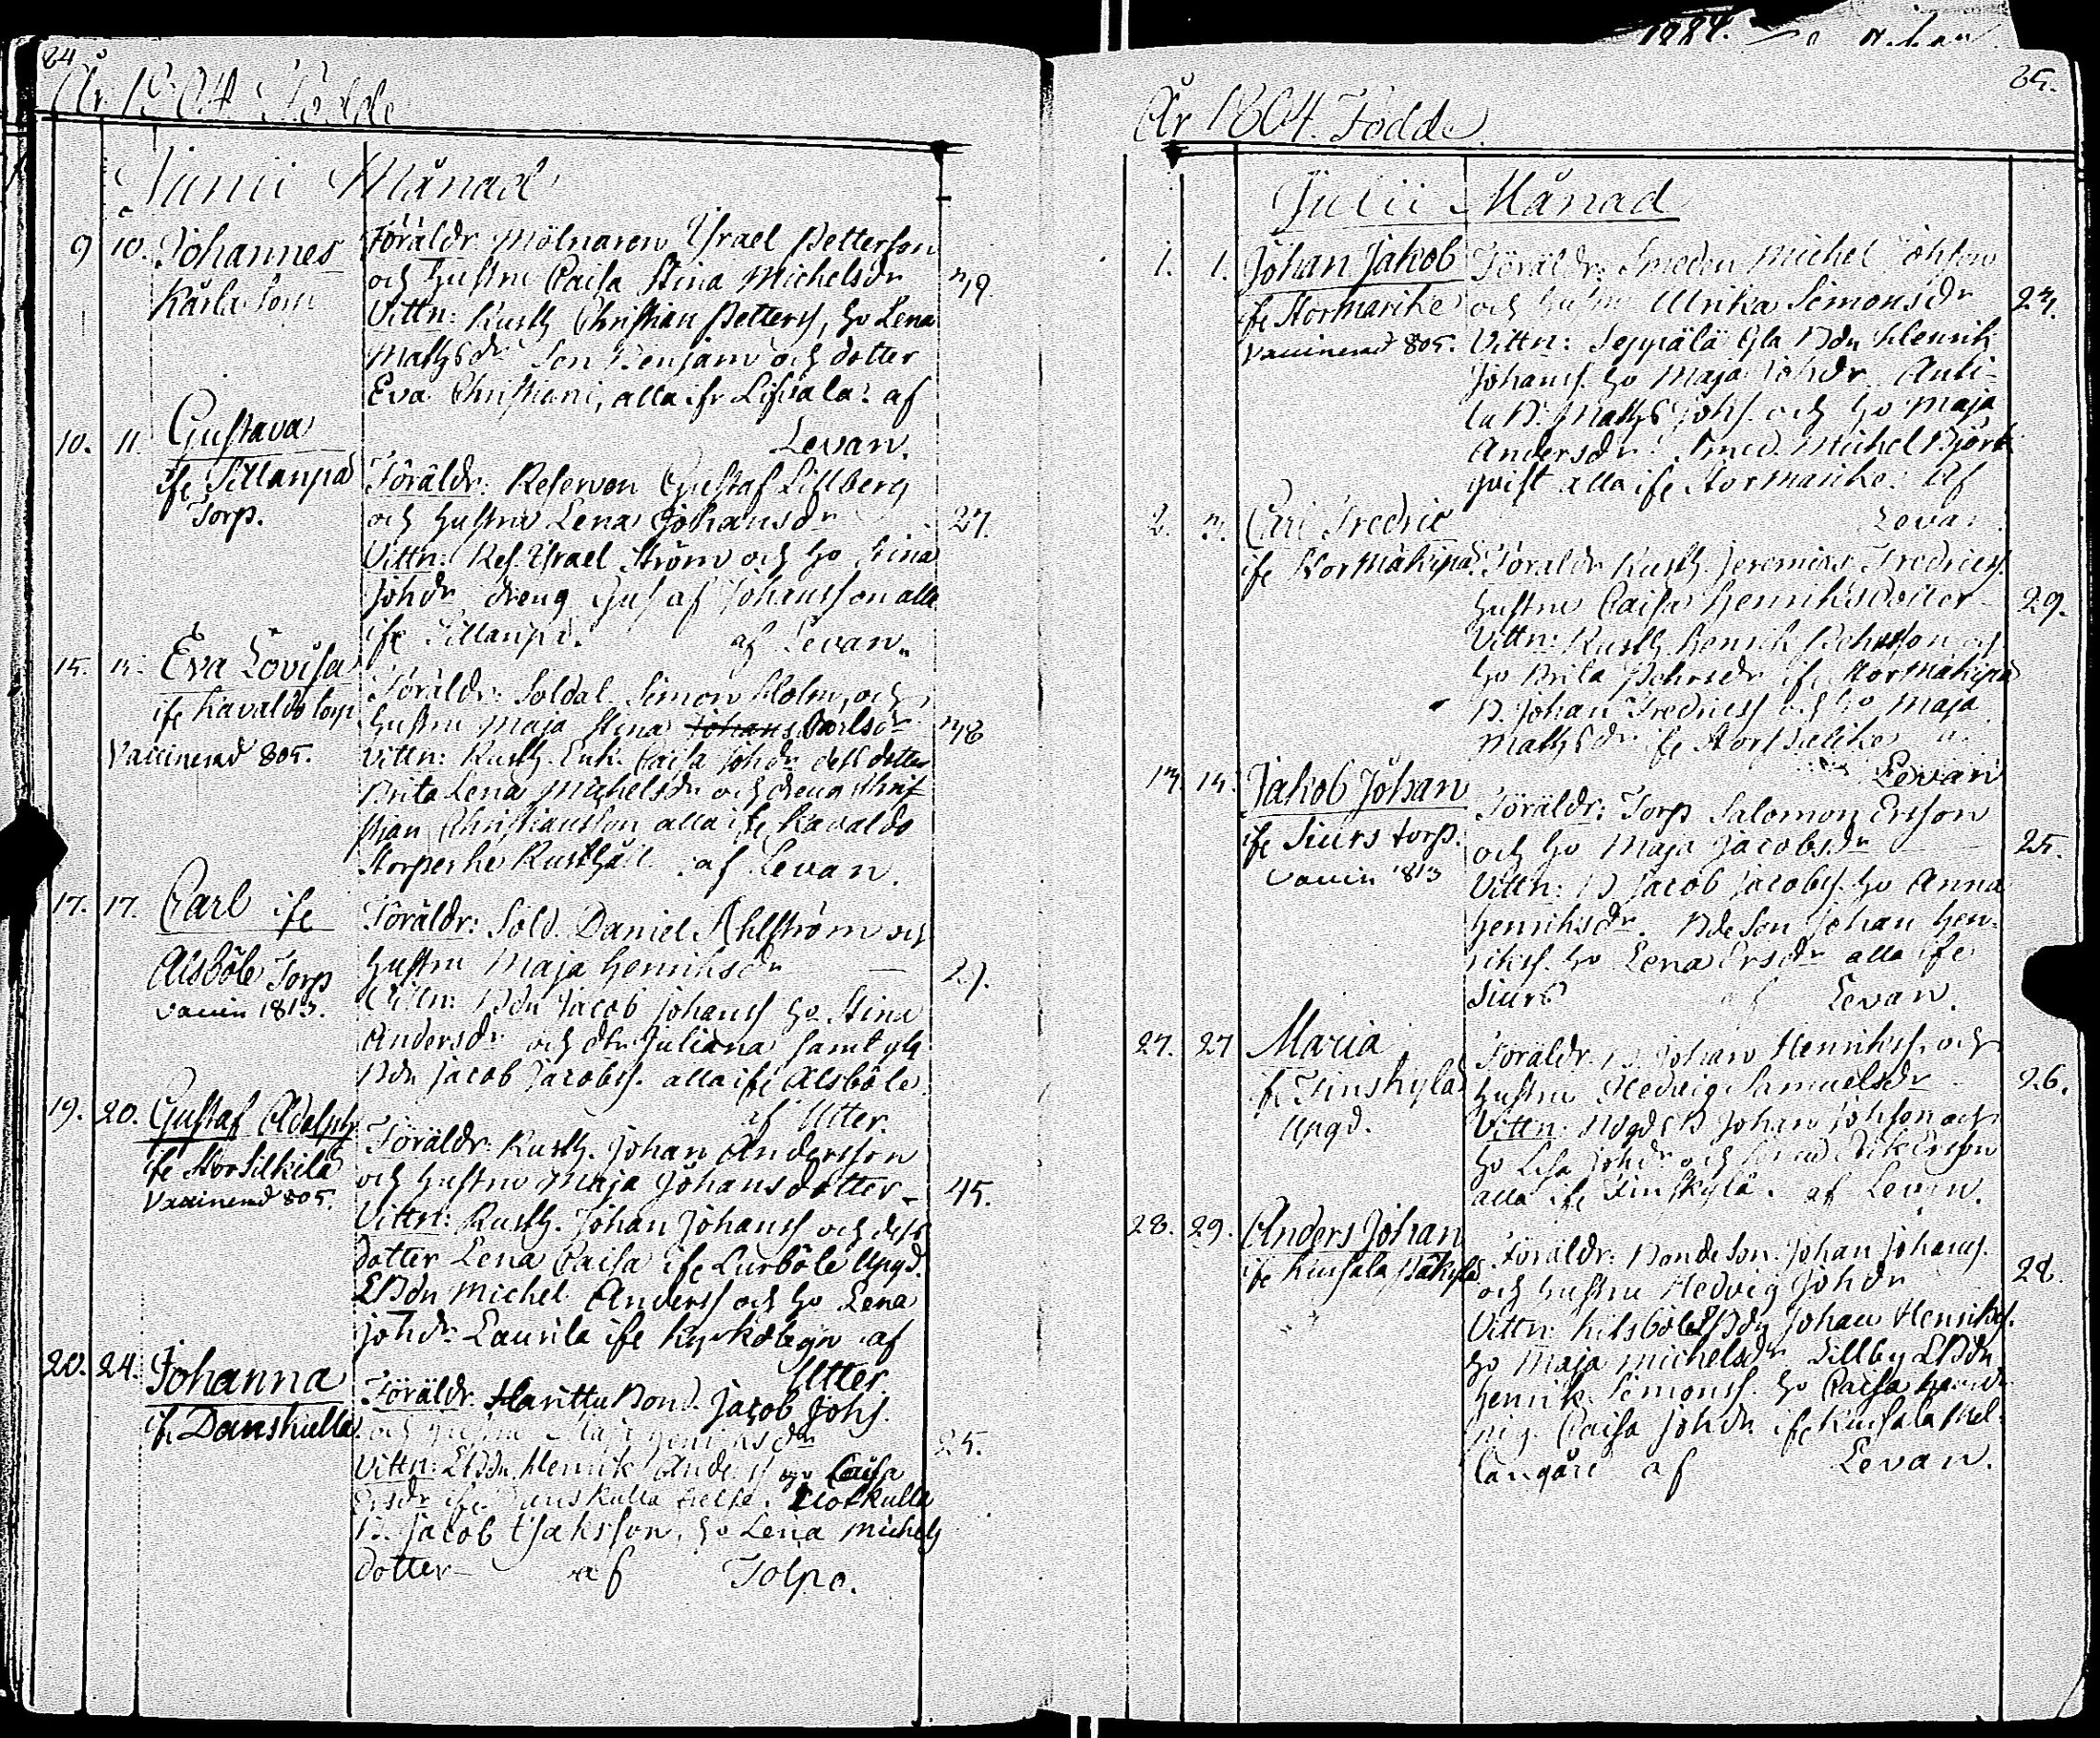 84
År 1804 Födde
Junii Månad
9 10. Johannes
Karlu torp
Föräldr. Mölnaren Isräel Petterson
och hustru Caisa Stina Michelsdr
Vittn: Rusth. Christian Petterss, ho Lena
Mathsdr Son Benjam och dotter
Eva Christiani, alla ifr af
Levan.
39.
10. 11. Gustava
ifr Sillanpä
Torp.
Föräldr: Reserven Gustaf Lillberg
och hustru Lena Johansdr
Vittn: Res. Israel Ström och ho Stina
Johdr dreng Gustaf Johansson alla
ifr Sillanpä. af Levan.
27.
15. 15. Eva Lovisa
ifr Kavaldo torp
Vaccinerad 805.
Föräldr: Soldat Simon Holm, och
hustru Maja Stina Johans Carlsdr
Vittn: Rusth. Enk. Caisa Johdr dess dotter
Brita Lena Michelsdr och dreng Chri-
stian Christiansson alla ifr Kavaldo
Rusthåll. af Levan.
38
17. 17. Carl ifr
Alsböle Torp
vaccin 1813.
Föräldr: Sold. Daniel Ahlström och
hustru Maja Henriksdr
Vittn: Bdn Jacob Johanss ho Stina
Andersdr och dtr Juliana samt
Bdn Jacob Jacobss. alla ifr Alsböle
af Utter.
27.
19. 20. Gustaf Adolph
ifr Storsilkilä
Vaccinerad 805.
Föräldr: Rusth. Johan Andersson
och hustru Maja Johansdotter
Vittn: Rusth. Johan Johanss och dess
dotter Lena Caisa ifr Lurböle Upgd.
LBdn Michel Anderss och ho Lena
Johdr Laurila ifr Kyrkobyn af
Utter
45.
20. 24. Johanna
ifr Danskulla
Föräldr. Bond. Jacob Johs.
och hustru Maja Henriksdr
Vittn: LBdn Henrik Anderss ho Caisa
Ersdr ifr Danskulla
B. Jacob Isaksson, ho Lena Michels
dotter af Tolpo.
25.
85.
År 1804. Födde
Julii Månad
1. 1. Johan Jakob
ifr Stormarike
Vaccinerad 805.
Föräldr: Smeden Michel Johsson
och hustru Ulrika Simonsdr
Vittn: Seppälä Bdn Henrik
Johanss. ho Maja Johdr. Anti-
la B. Maths Johs. och ho Maja
Andersdr. Smed. Michel Björk
qvist alla ifr Stormarike. Af
Levan
23.
2. 3. Carl Fredric
ifr Stormäkipä
Föräldr Rusth. Jeremias Fredricss.
hustru Caisa Henriksdotter
Vittn: Rusth. Henrik Pehrsson och
ho Brita Pehrsdr ifr Stormäkipä
B. Johan Fredricss och ho Maja
Mathsdr ifr
Levan
29.
13. 14. Jakob Johan
ifr Siurs torp.
vaccin 1813
Föräldr: Torp Salomon Ersson
och ho Maja Jacobsdr
Vittn: B Jacob Jacobss. ho Anna
Henriksdr. Bde Son Johan Hen-
rikss. ho Lena Ersdr alla ifr
Siurs af Levan.
25.
27. 27 Maria
ifr Finskylä
Upgd.
Föräldr. B. Johan Henrikss. och
hustru Hedvig Samuelsdr
Vittn: B Johan Johsson och
ho Lisa Johdr och Ersson
alla ifr Finskylä. af Levan.
26.
28. 29. Anders Johan
ifr Kuusala
Föräldr: Bonde Son. Johan Johanss.
och hustru Hedvig Johdr
Vittn: Kilsböle Bdn Johan Henrikss.
ho Maja Michelsdr Lillby LBdn
Henrik Simonss. ho Caisa
pig. Caisa Johdr. ifr Kuusala Mel-
langård af Levan.
28.